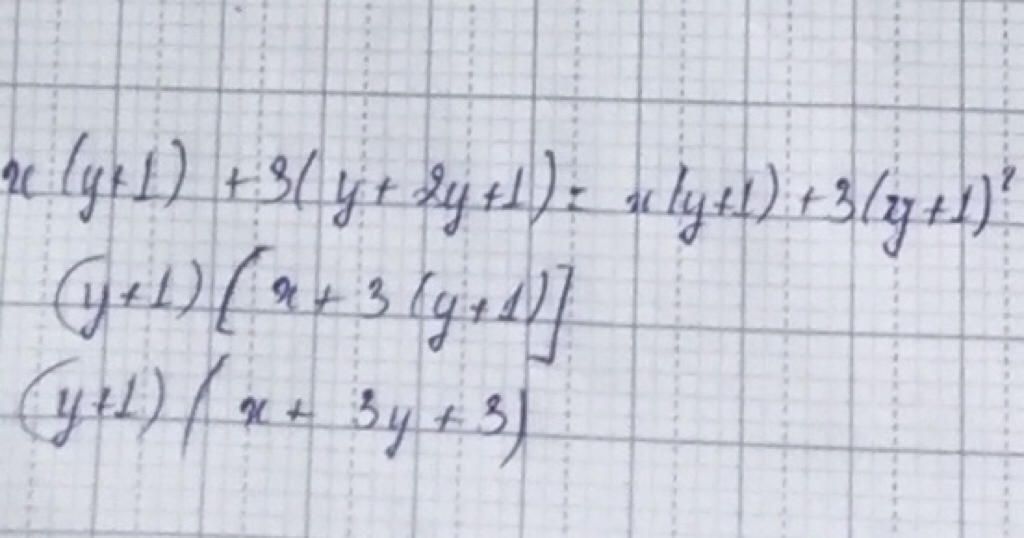 x(y+1) +3(y+2y+1) = x(y+1) +3(y+1)²
(y+1)[x+3(y+1)]
(y+1)(x+3y+3)